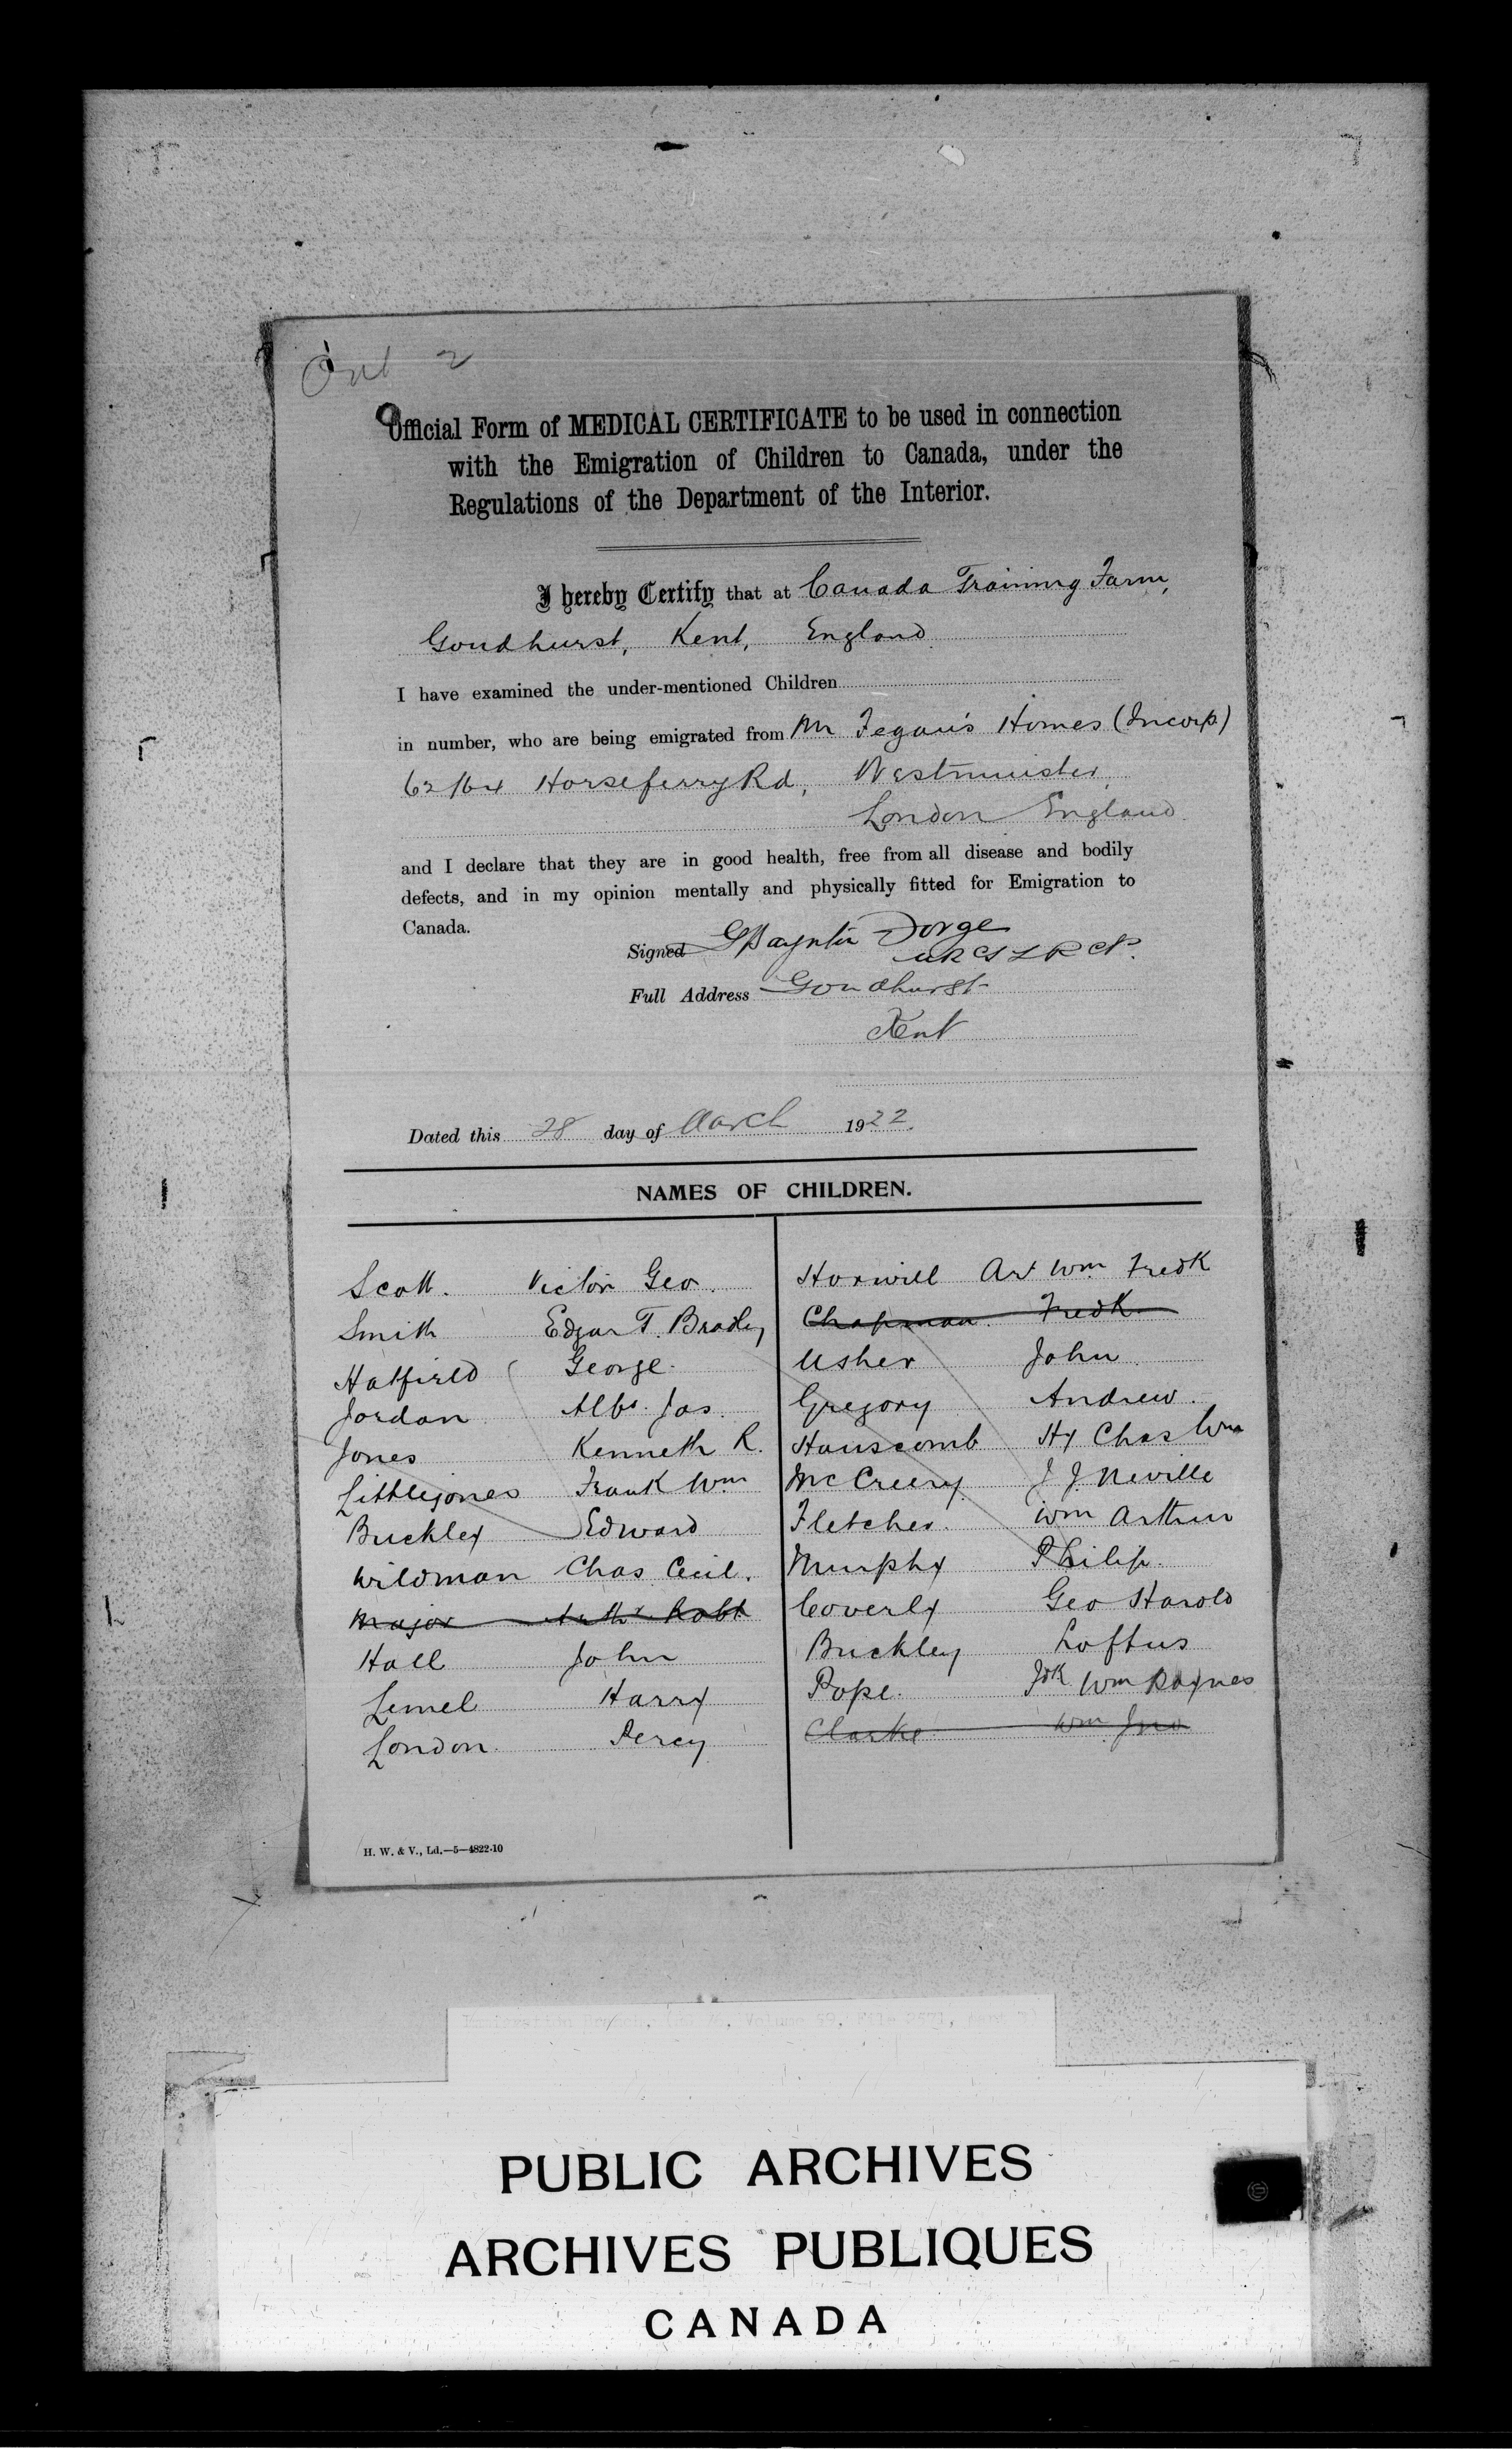 Official Form of MEDICAL CERTIFICATE to be used in connection
with the Emigration of Children to Canada, under the
Regulations of the Department of the Interior.
I hereby Certify that at Canada Training Farm,
Goudhurst, Kent, England
I have examined the under-mentioned Children
in number, who are being emigrated from Mr Fegan's Homes (Incorp)
62/64 Horseferry Rd, Westminster,
London England
and I declare that they are in good health, free from all disease and bodily
defects, and in my opinion mentally and physically fitted for Emigration to
Canada.
Signed G Paynter
MRCS LRCP.
Full Address Goudhurst
Kent
Dated this 28 day of March 1922.
NAMES OF CHILDREN.
Scott. Victor Geo.
Smith Edgar T. Bradley
Hatfield George.
Jordan Albt. Jas.
Jones Kenneth R.
Littlejones Frank Wm
Buckley Edward
Wildman Chas Cecil.
Major Arthr Robt
Hall John
Lemel Harry
London. Percy
Horwill Art Wm Fredk
Chapman. Fredk.
Usher John
Gregory Andrew.
Hanscomb Hy Chas Wm
McCreery J J. Neville
Fletcher. Wm Arthur
Murphy Philip.
Coverly Geo Harold
Buckley Loftus
Pope. Fdk Wm Raynes
Clarke Wm Jno
H. W. & V., Ld.—5—4822-10
PUBLIC ARCHIVES
ARCHIVES PUBLIQUES
CANADA